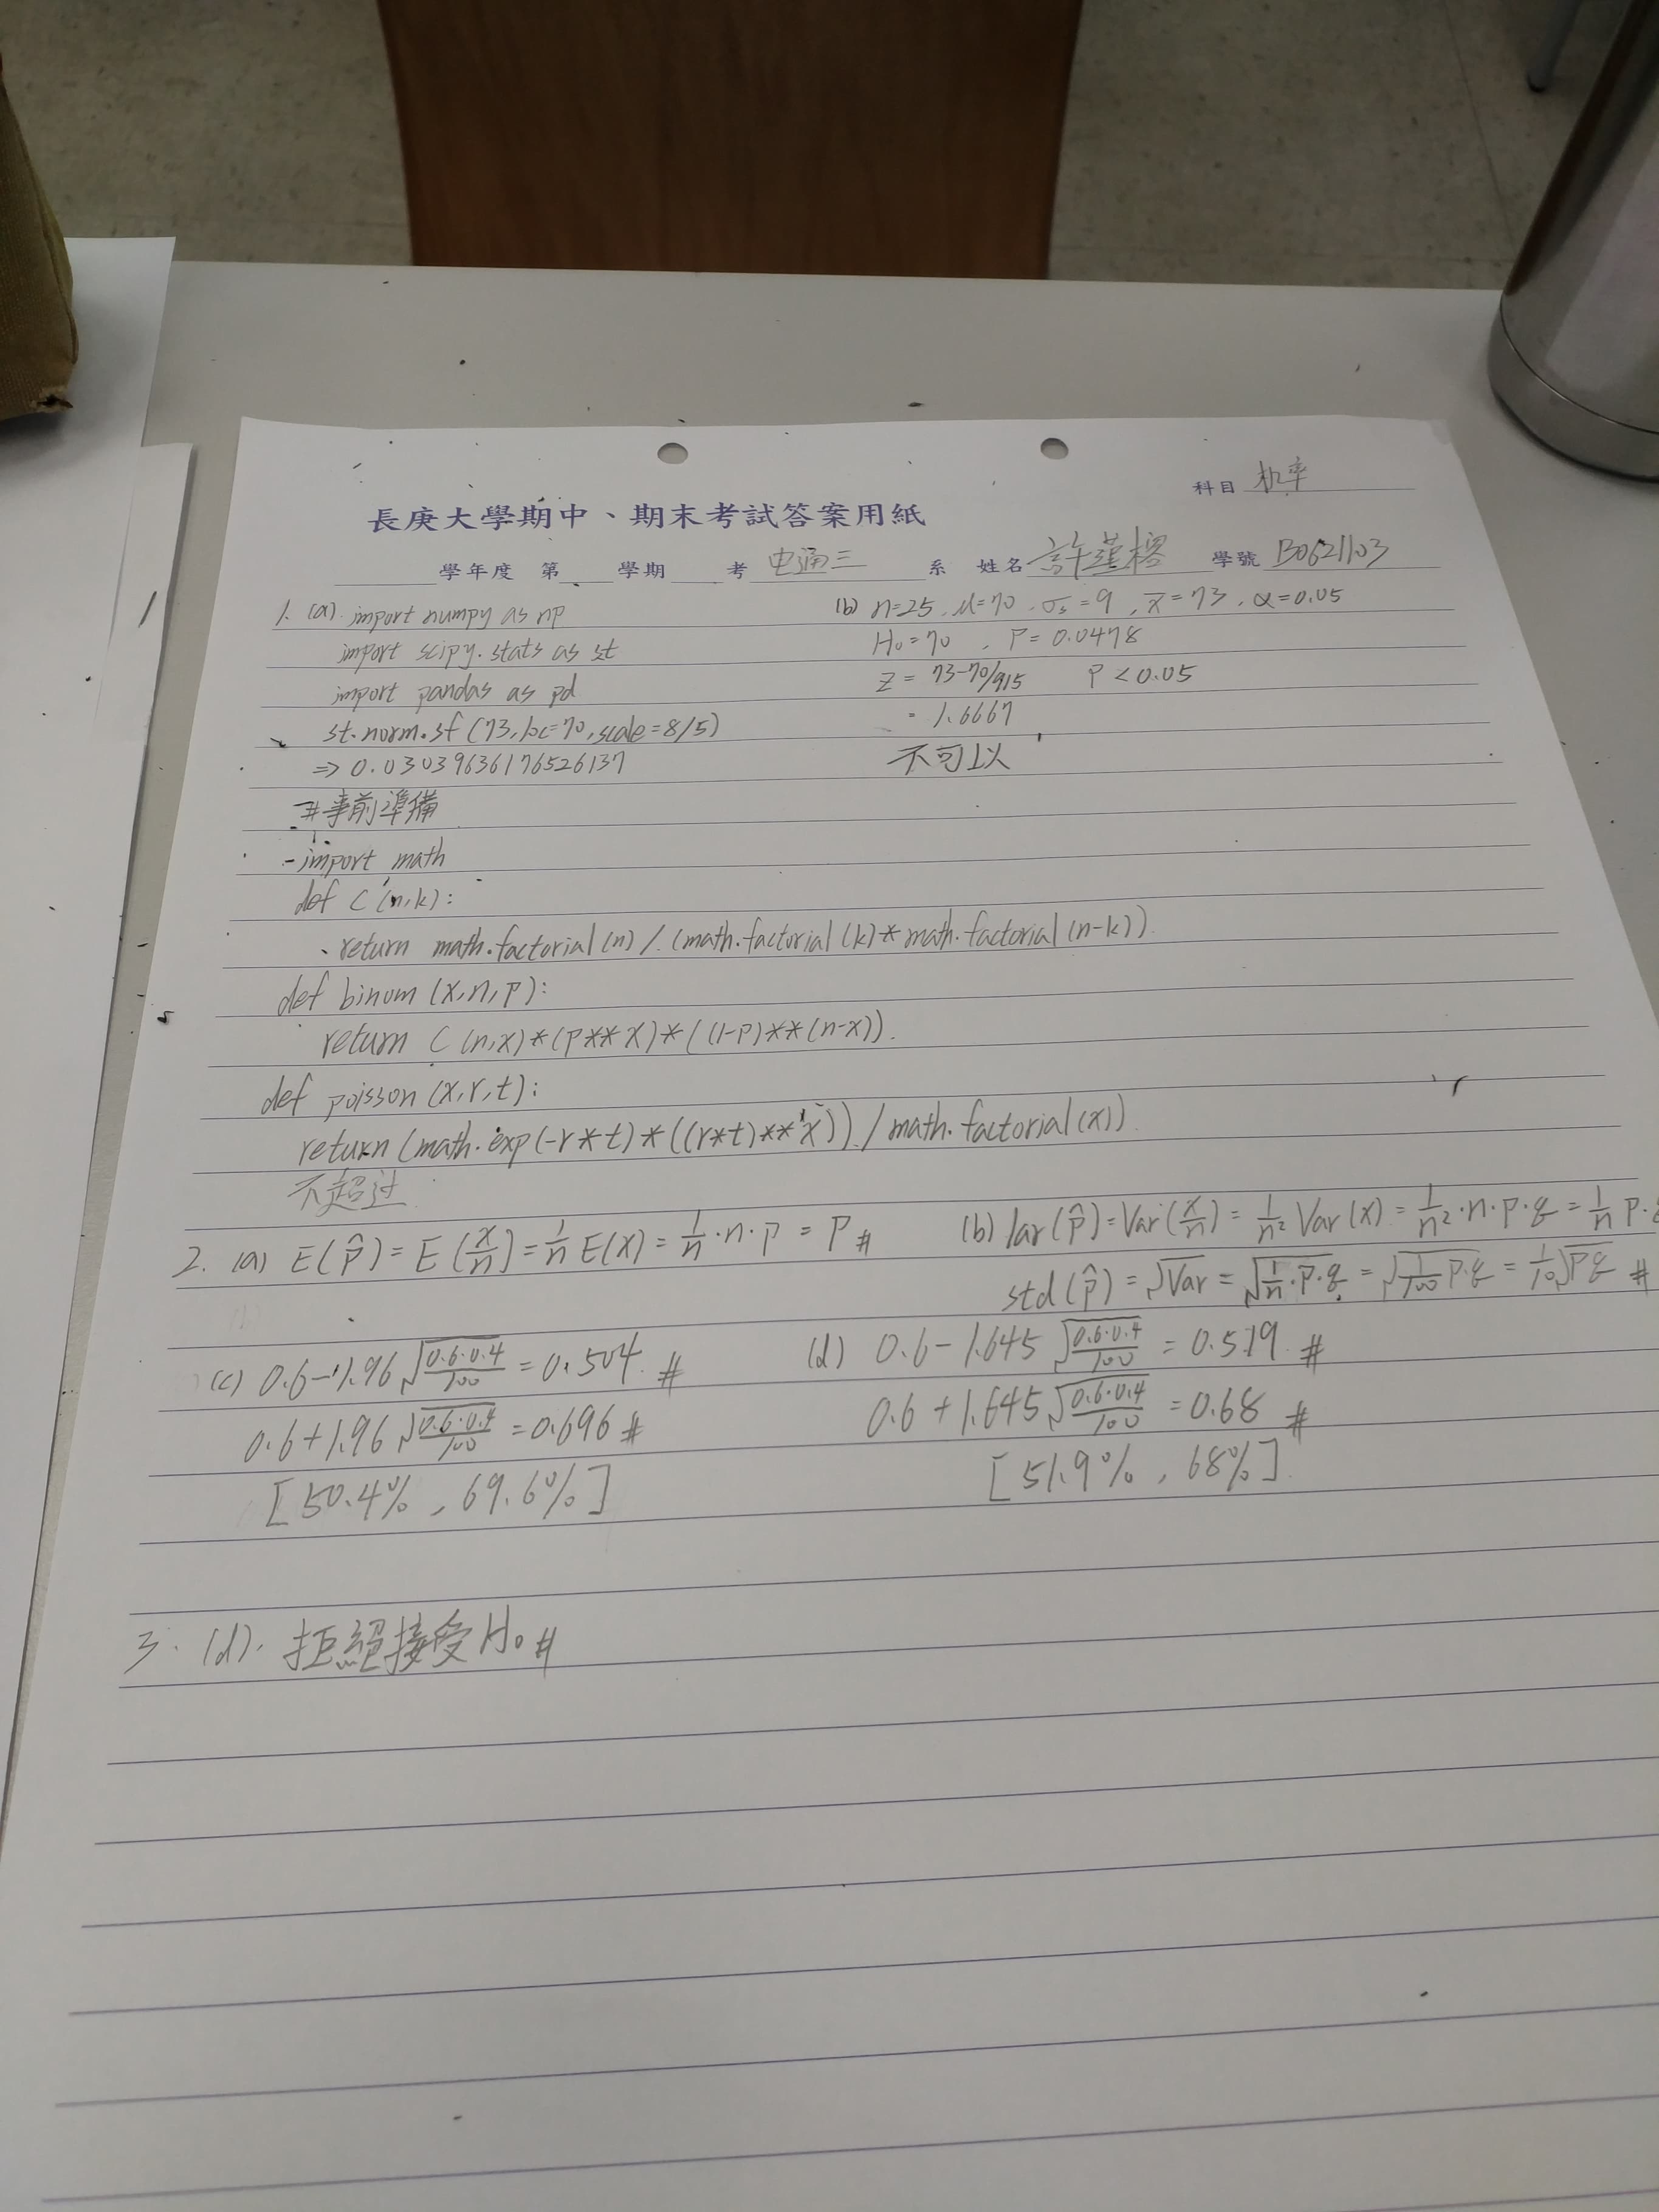 科目 机率
長庚大學期中、期末考試答案用紙
學年度 第 學期 考 电通三 系 姓名 許瑾榕 學號 B0621103
1. (a). import numpy as np
import scipy.stats as st
import pandas as pd
st.norm.sf (73, loc=70, scale=8/5)
⇒ 0.030396361176526137
(b) n=25, μ=70, σs=9, x̄=73, α=0.05
H₀=70 , P=0.0478
Z = 73-70/9/5 P<0.05
= 1.6667
不可以
#事前準備
import math
def C (n,k):
return math.factorial(n) / (math.factorial(k)*math.factorial(n-k))
def binom (x,n,p):
return C (n,x)*(p**x)*((1-p)**(n-x)).
def poisson (x,r,t):
return (math.exp(-r*t)*((r*t)**x)) / math.factorial(x))
不超过
2. (a) E(p̂) = E(x/n) = 1/n E(X) = 1/n·n·p = P #
(b) Var(p̂) = Var(x/n) = 1/n² Var(x) = 1/n²·n·p·q = 1/n p·q
std(p̂) = √Var = √(1/n·p·q) = √(1/100 p·q) = 1/10 √pq #
(c) 0.6-1.96 √(0.6·0.4/100) = 0.504. #
0.6+1.96 √(0.6·0.4/100) = 0.696 #
[50.4% , 69.6%]
(d) 0.6-1.645 √(0.6·0.4/100) = 0.519 #
0.6+1.645 √(0.6·0.4/100) = 0.68 #
[51.9% , 68%].
3. (d). 拒絕接受H₀ #